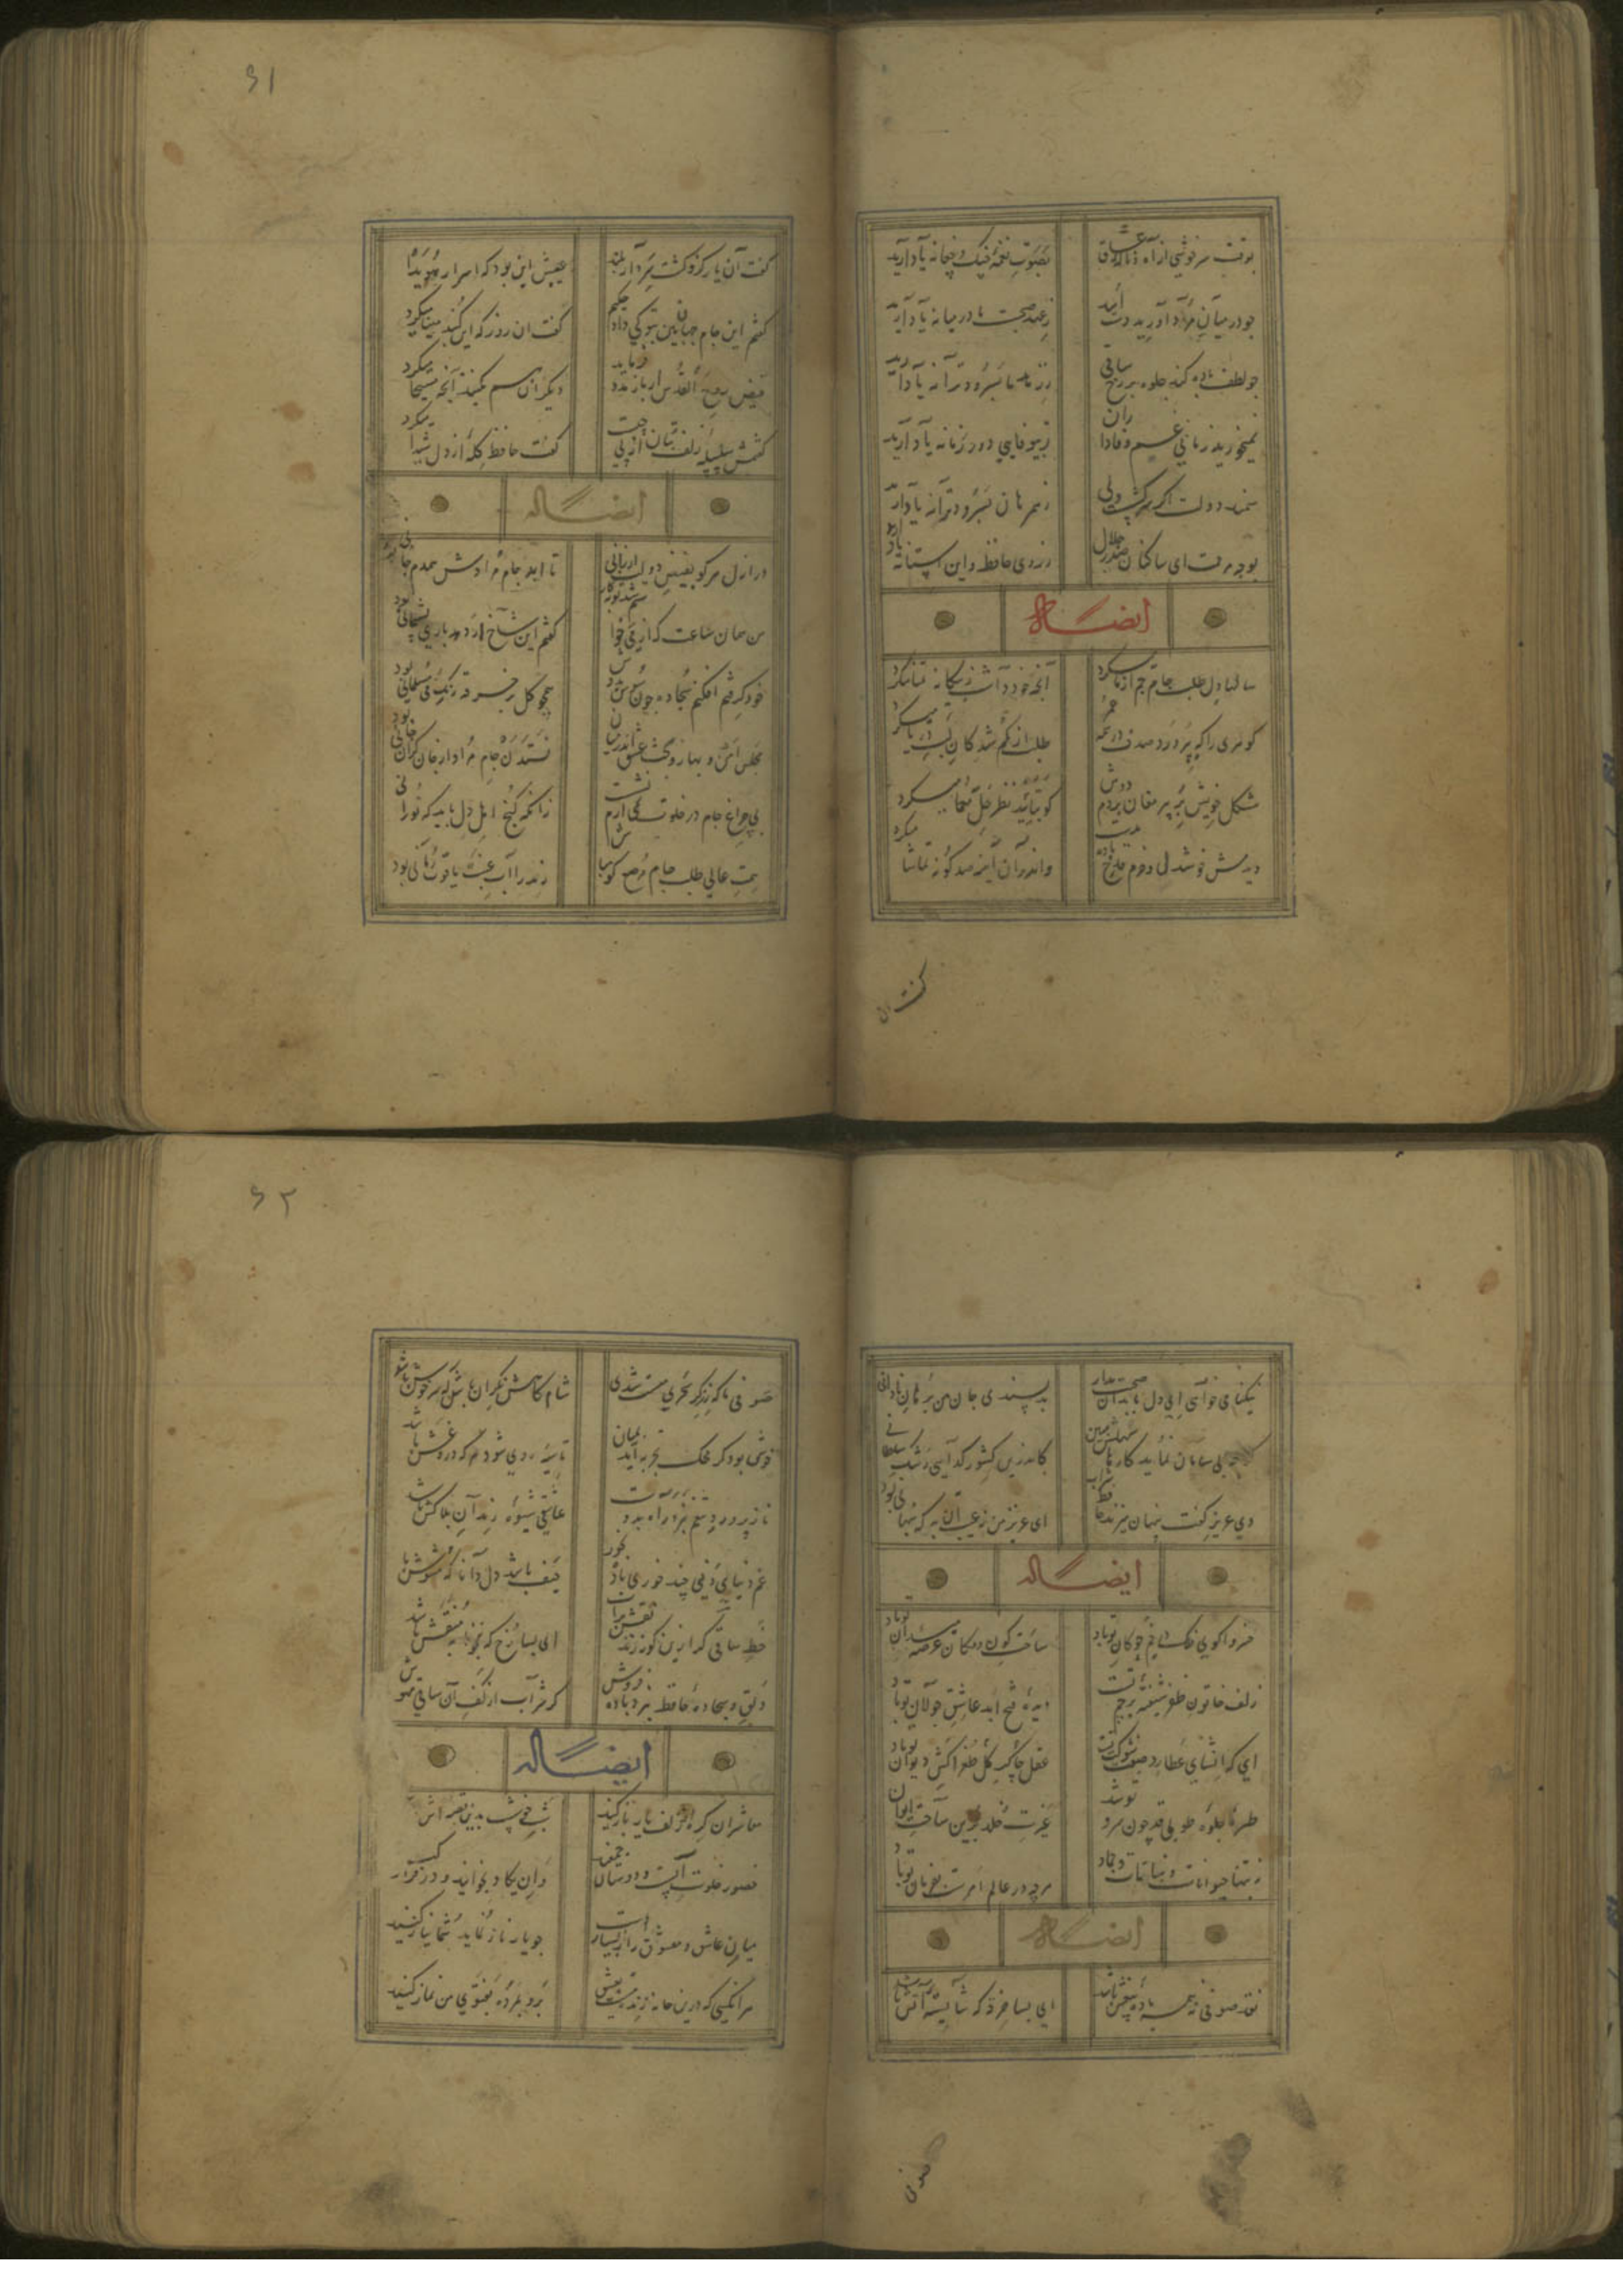 بوقت سرخوشی از آه و ناله عشاق بصوت نغمه چنگ و چغانه یاد آرید
چو در میان مراد آورید دست امید ز عهد صحبت ما در میانه یاد آرید
چو لطف باده کند جلوه بر رخ ساقی ز ما بسرود و ترانه یاد آرید
نمیخورید زمانی غم وفاداران ز بیوفایی دور زمانه یاد آرید
سمند دولت اگر سرکشست ولی ز همرهان بسرود و ترانه یاد آرید
بوجه مرحمت ای ساکنان صدر جلال ز روی حافظ و این آستانه یاد آرید
ایضاله
سالها دل طلب جام جم از ما میکرد آنچه خود داشت ز بیگانه تمنا میکرد
گوهری را که بپرورد صدف در همه عمر طلب از گم شدگان لب دریا میکرد
مشکل خویش بر پیر مغان بردم دوش کو بتائید نظر حل معما میکرد
دیدمش خوشدل و خرم قدح باده بدست واندران آینه صد گونه تماشا میکرد
گفت آن
۶۱
گفت آن یار کزو گشت سر دار بلند عیبش این بود که اسرار هویدا
گفتم این جام جهان بین بتو کی داد حکیم گفت آن روز که این گنبد مینا میکرد
فیض روح القدس ار باز مدد فرماید دیگران هم بکنند آنچه مسیحا میکرد
گفتمش سلسله زلف بتان از پی چیست گفت حافظ گله از دل شیدا میکرد
ایضاله
در ازل هر کو بفیض دولت ارزانی بود تا ابد جام مرادش همدم جانی بود
من همان ساعت که از می خواستم شد توبه کار گفتم این شاخ ار دهد باری پشیمانی بود
خود گرفتم افکنم سجاده چون سوسن بدوش همچو گل بر خرقه رنگ می مسلمانی بود
مجلس انس و بهار و بحث عشق اندر میان نستدن جام مراد از جان گران جانی بود
بی چراغ جام در خلوت نمی آرم نشست زانکه کنج اهل دل باید که نورانی
همت عالی طلب جام مرصع گو مباش رند را آب عنب یاقوت رمانی بود
نیکنامی خواهی ای دل با بدان صحبت مدار بد پسندی جان من برهان نادانی
بی سامان نماید کارما سهلش مبین کاندرین کشور گدایی رشک سلطانی
دی عزیزی گفت پنهان میخورد حافظ شراب ای عزیز من نه عیب آن به که پنهانی بود
ایضاله
خسروا گوی فلک در خم چوگان تو باد ساحت کون و مکان عرصه میدان تو باد
زلف خاتون ظفر شیفته پرچم تست دیده فتح ابد عاشق جولان تو باد
ای که انشای عطارد صفت شوکت تست عقل کل چاکر طغراکش دیوان تو باد
طیره جلوه طوبی قد چون سرو تو شد غیرت خلد برین ساحت ایوان
نه بتنها حیوانات و نباتات و جماد هر چه در عالم امرست بفرمان تو باد
ایضاله
نقد صوفی نه همه باده بیغش باشد ای بسا خرقه که شایسته آتش باشد
صوفی
۶۲
صوفی ما که ز ذکر سحری مست شدی شام گاهش نگران باش که سرخوش باشد
خوش بود گر محک تجربه آید بمیان تا سیه روی شود هر که درو غش باشد
ناز پرورد تنعم نبرد راه بدوست عاشقی شیوه رندان بلاکش باشد
غم دنیای دنی چند خوری باده بخور حیف باشد دل دانا که مشوش باشد
خط ساقی گر ازین گونه زند نقش بر آب ای بسا رخ که بخونابه منقش باشد
دلق و سجاده حافظ ببرد باده فروش گر شراب از کف آن ساقی مهوش
ایضاله
معاشران گره از زلف یار باز کنید شبی خوشست بدین قصه اش
حضور خلوت انست و دوستان جمعند وان یکاد بخوانید و در فراز کنید
میان عاشق و معشوق راز بسیار است چو یار ناز نماید شما نیاز کنید
هر آنکسی که درین خانه زنده نیست بعشق برو نمرده بفتوی من نماز کنید